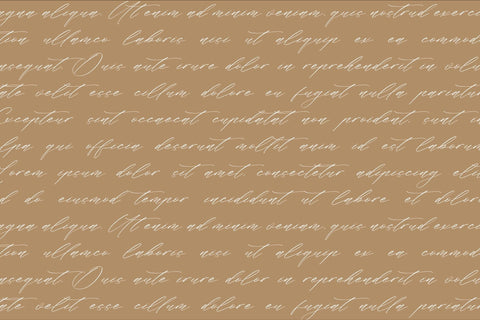 agna aliqua Ut enim ad minim veniam quis nostrud exerc
tion ullamco laboris nisi ut aliquip ex ea commod
nsequat Duis aute irure dolor in reprehenderit in volu
tate velit esse cillum dolore eu fugiat nulla pariatur
Excepteur sint occaecat cupidatat non proident sunt in
lpa qui officia deserunt mollit anim id est laborum
Lorem ipsum dolor sit amet consectetur adipiscing elit
d do eiusmod tempor incididunt ut labore et dolore
agna aliqua Ut enim ad minim veniam quis nostrud exerc
tion ullamco laboris nisi ut aliquip ex ea commod
nsequat Duis aute irure dolor in reprehenderit in volu
tate velit esse cillum dolore eu fugiat nulla pariatur